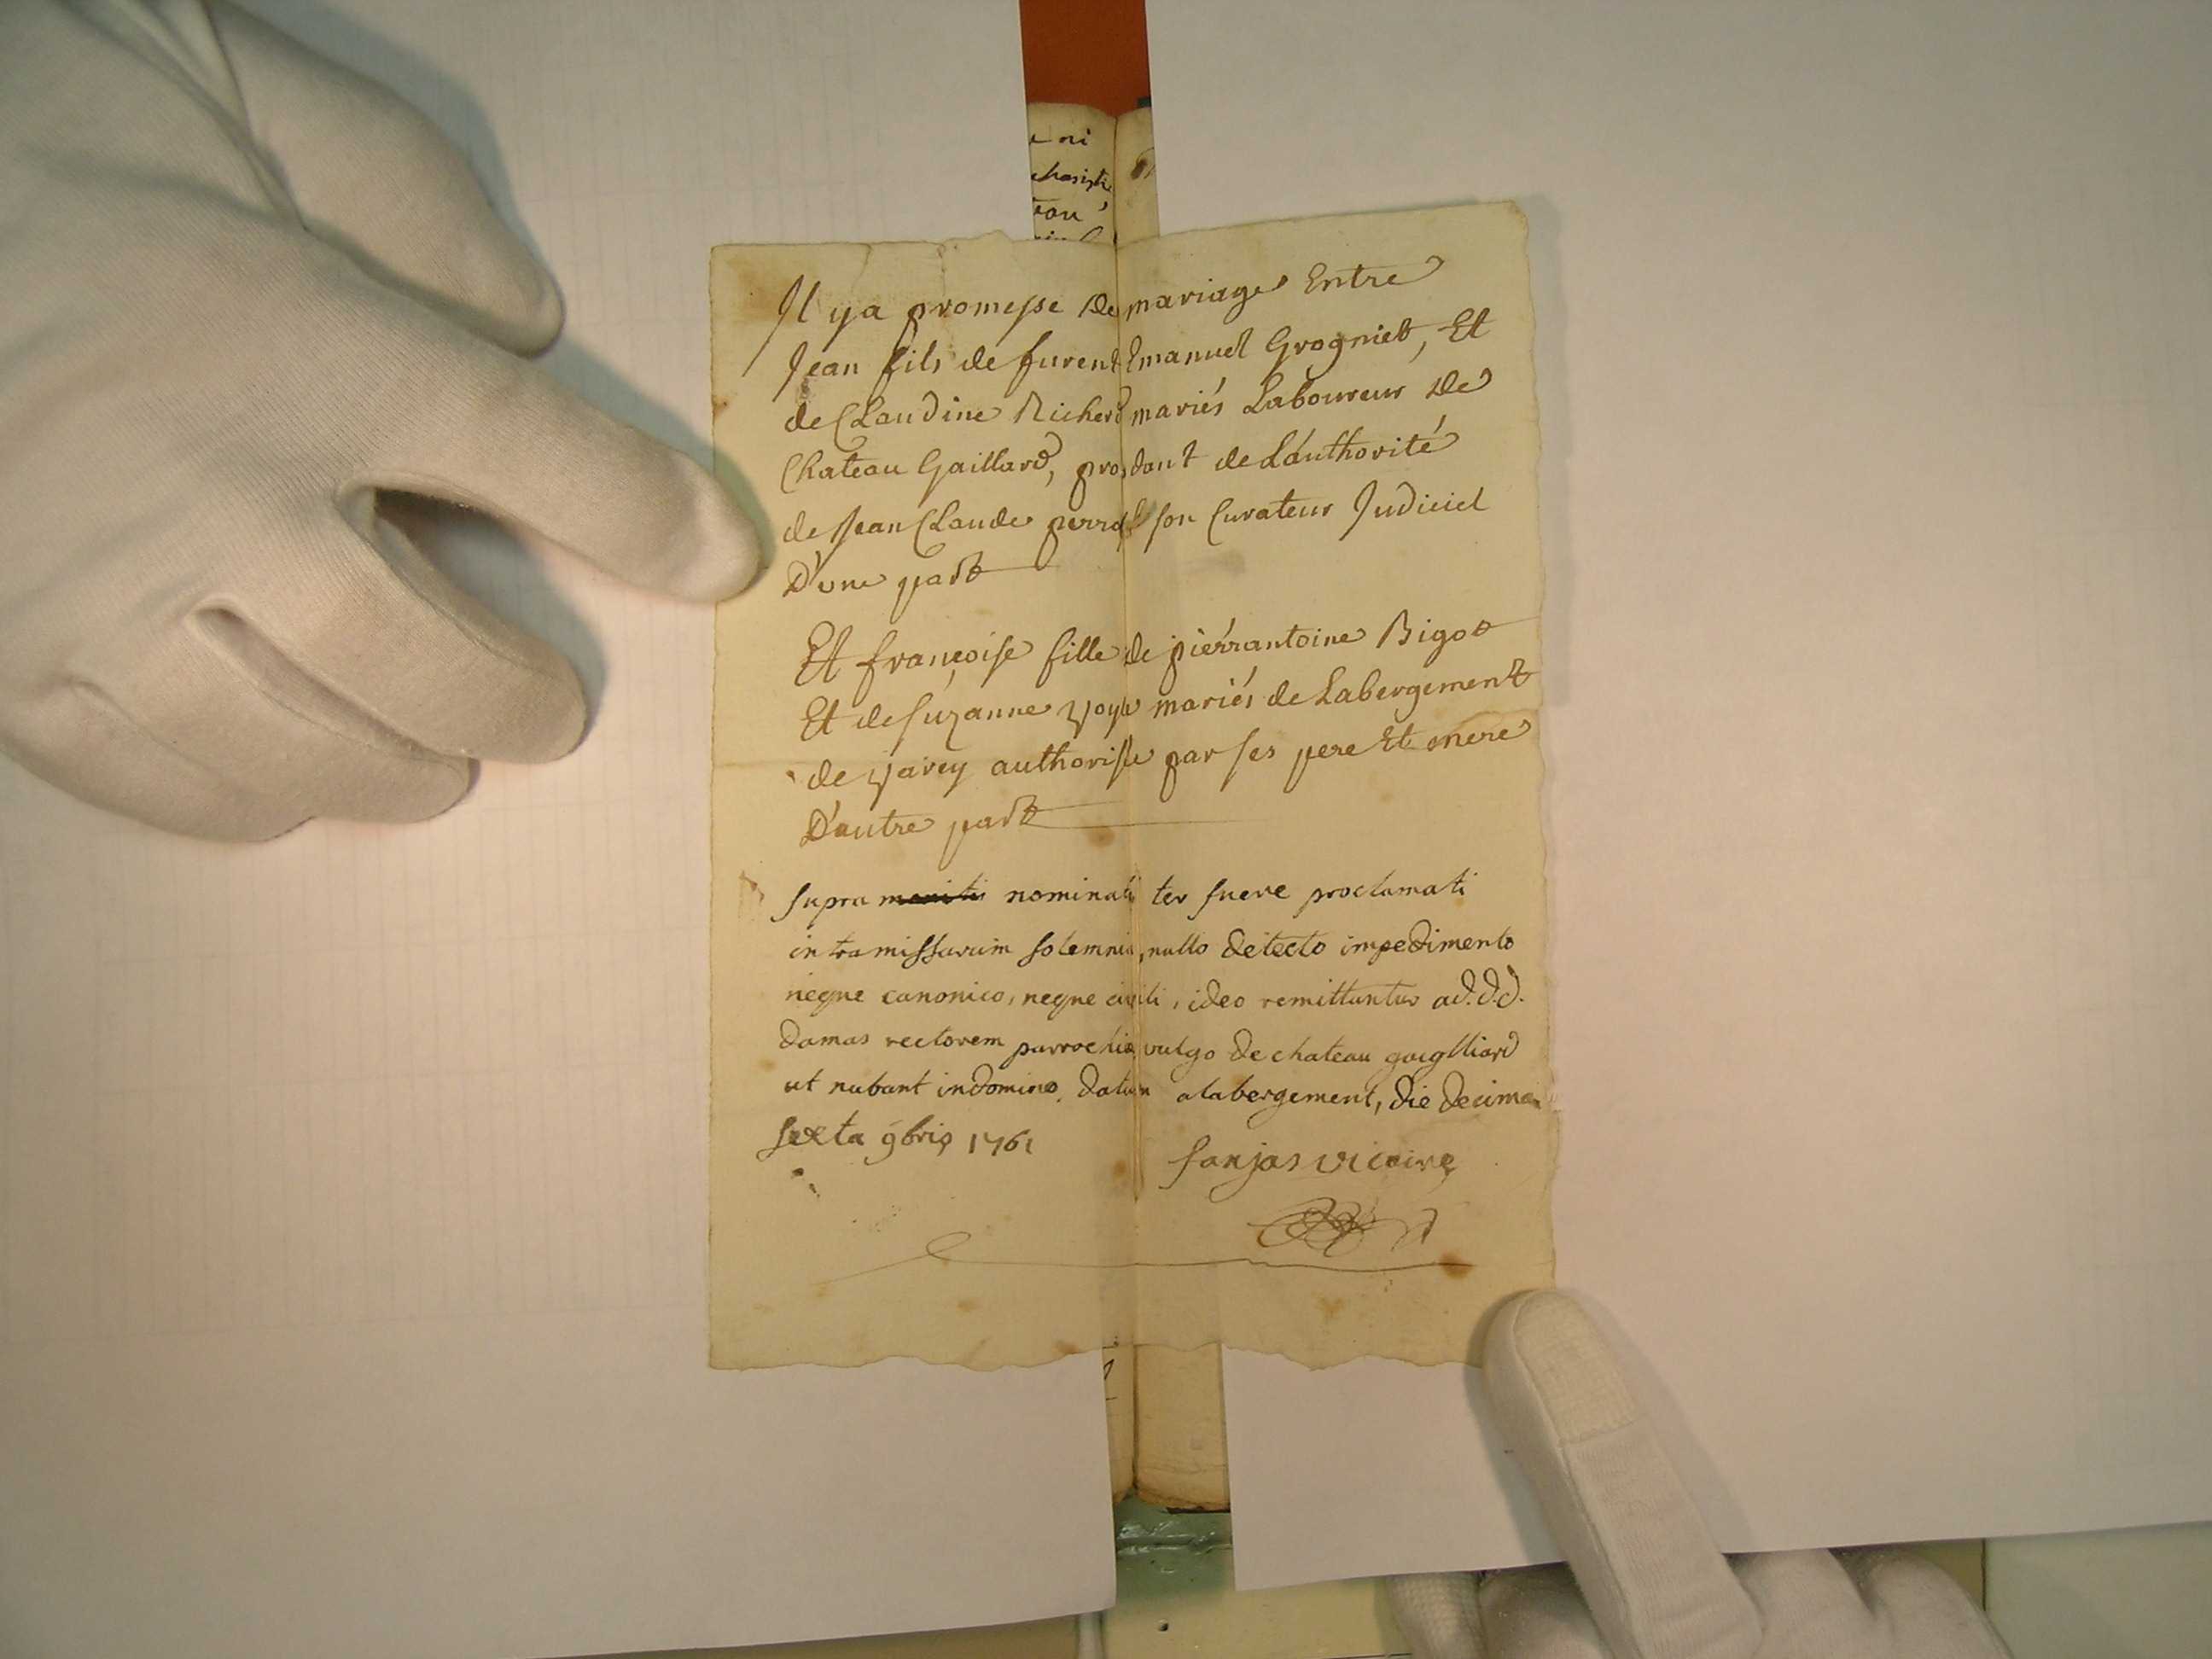 ni
tau
Il y a promesse de mariage Entre
Jean fils de furent Emanuel Grogniet, Et
de Claudine Richerd mariés Laboureur de
Chateau Gaillard, prodant de Lauthorité
de Jean Claude son Curateur Judiciel
D'une part
Et françoise fille de pierrantoine Bigot
Et de suzanne mariés de Labergement
de varey authorisse par ses pere Et mere
D'autre part
supra nominati ter fuere proclamati
intra missarum solemnia, nullo detecto impedimento
neque canonico, neque civili, ideo remittuntur ad. d. d.
damas rectorem parrochiæ vulgo de chateau gaiglliard
ut nubant in domino. datum a labergement, die decima
sexta 9bris 1761
fanjas vicaire